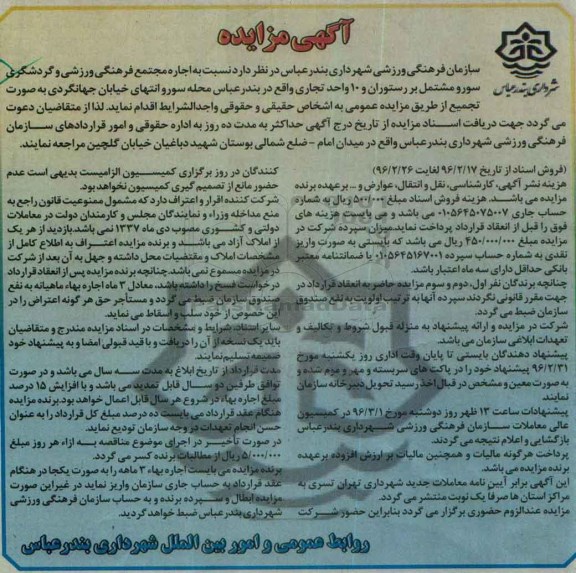 آگهی مزایده
شهرداری بندرعباس
سازمان فرهنگی ورزشی شهرداری بندرعباس در نظر دارد نسبت به اجاره مجتمع فرهنگی ورزشی و گردشگری
سورو مشتمل بر رستوران و ۱۰ واحد تجاری واقع در بندرعباس محله سورو انتهای خیابان جهانگردی به صورت
تجمیع از طریق مزایده عمومی به اشخاص حقیقی و حقوقی واجدالشرایط اقدام نماید. لذا از متقاضیان دعوت
می گردد جهت دریافت اسناد مزایده از تاریخ درج آگهی حداکثر به مدت ده روز به اداره حقوقی و امور قراردادهای سازمان
فرهنگی ورزشی شهرداری بندرعباس واقع در میدان امام - ضلع شمالی بوستان شهید دباغیان خیابان گلچین مراجعه نمایند.
(فروش اسناد از تاریخ ۹۶/۲/۱۷ لغایت ۹۶/۲/۲۶)
هزینه نشر آگهی، کارشناسی، نقل و انتقال، عوارض و .. برعهده برنده
مزایده می باشد. هزینه فروش اسناد مبلغ ۵۰۰/۰۰۰ ریال به شماره
حساب جاری ۰۱۰۵۶۴۵۰۷۵۰۰۷ می باشد و می بایست هزینه های
فوق را قبل از انعقاد قرارداد پرداخت نماید. میزان سپرده شرکت در
مزایده مبلغ ۴۵۰/۰۰۰/۰۰۰ ریال می باشد که بایستی به صورت واریز
نقدی به شماره حساب سپرده ۰۱۰۵۶۴۵۱۶۷۰۰۱ یا ضمانتنامه معتبر
بانکی حداقل دارای سه ماه اعتبار باشد.
چنانچه برندگان نفر اول، دوم و سوم مزایده حاضر به انعقاد قرارداد در
جهت مقرر قانونی نگردند سپرده آنها به ترتیب اولویت به نفع صندوق
سازمان ضبط می گردد.
شرکت در مزایده و ارائه پیشنهاد به منزله قبول شروط و تکالیف و
تعهدات ابلاغی سازمان می باشد.
پیشنهاد دهندگان بایستی تا پایان وقت اداری روز یکشنبه مورخ
۹۶/۲/۳۱ پیشنهاد خود را در پاکت های سربسته و مهر و مزم شده و
به صورت معین و مشخص در قبال اخذ رسید تحویل دبیرخانه سازمان
نمایند
پیشنهادات ساعت ۱۳ ظهر روز دوشنبه مورخ ۹۶/۳/۱ در کمیسیون
عالی معاملات سازمان فرهنگی ورزشی شهرداری بندرعباس
بازگشایی و اعلام نتیجه می گردند.
پرداخت هرگونه مالیات و همچنین مالیات بر ارزش افزوده برعهده
برنده مزایده می باشد.
این آگهی برابر آیین نامه معاملات جدید شهرداری تهران تسری به
مراکز استان ها صرفا یک نوبت منتشر می گردد.
مزایده عندالزوم حضوری برگزار می گردد بنابراین حضور شرکت
کنندگان در روز برگزاری کمیسیون الزامیست بدیهی است عدم
حضور مانع از تصمیم گیری کمیسیون نخواهد بود.
شرکت کننده اقرار و اعتراف دارد که مشمول ممنوعیت قانون راجع به
منع مداخله وزراء و نمایندگان مجلس و کارمندان دولت در معاملات
دولتی و کشوری مصوب دی ماه ۱۳۳۷ نمی باشد. بازدید از هر یک
از املاک آزاد می باشد و برنده مزایده اعتراف به اطلاع کامل از
مشخصات املاک و مقتضیات محل داشته و جهل به آن بعد از شرکت
در مزایده مسموع نمی باشد. چنانچه برنده مزایده پس از انعقاد قرارداد
درخواست فسخ را داشته باشد، معادل ۳ ماه اجاره بهاء ماهیانه به نفع
صندوق سازمان ضبط می گردد و مستأجر حق هر گونه اعتراض را در
این خصوص از خود سلب و اسقاط می نماید.
سایر اسناد، شرایط و مشخصات در اسناد مزایده مندرج و متقاضیان
باید یک نسخه از آن را دریافت و با قید قبولی امضا و به پیشنهاد خود
ضمیمه تسلیم نمایند
مدت قرارداد از تاریخ ابلاغ به مدت سه سال می باشد و در صورت
توافق طرفین دو سال قابل تمدید می باشد و با افزایش ۱۵ درصد
مبلغ اجاره بهاء در شروع هر سال قابل اعمال خواهد بود. برنده مزایده
هنگام عقد قرارداد می بایست ده درصد مبلغ کل قرارداد را به عنوان
حسن انجام تعهدات در وجه سازمان تودیع نماید.
در صورت تأخیر در اجرای موضوع مناقصه به ازاء هر روز مبلغ
۵/۰۰۰/۰۰۰ ریال از مطالبات برنده کسر می گردد.
برنده مزایده می بایست اجاره بهاء ۳ ماهه را به صورت یکجا در هنگام
عقد قرارداد به حساب جاری سازمان واریز نماید در غیر این صورت
مزایده ابطال و سپرده برنده و به حساب سازمان فرهنگی ورزشی
شهرداری بندرعباس ضبط خواهد گردید.
روابط عمومی و امور بین الملل شهرداری بندرعباس